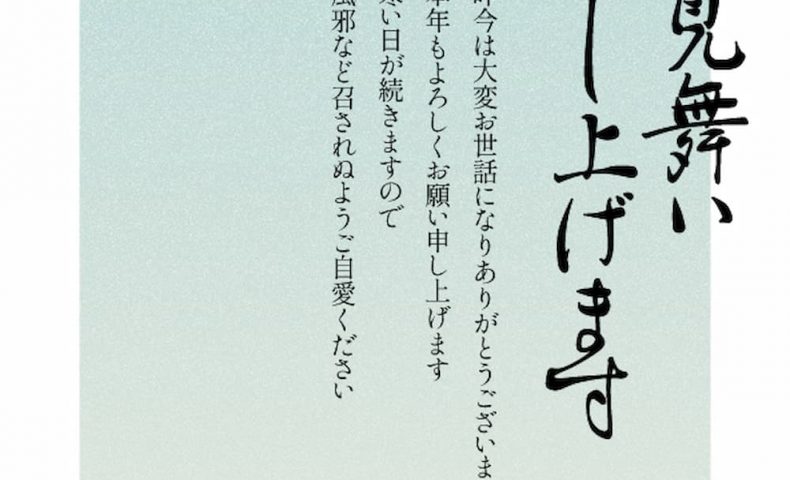 見舞い
し上げます
昨今は大変お世話になりありがとうございま
本年もよろしくお願い申し上げます
寒い日が続きますので
風邪など召されぬようご自愛ください